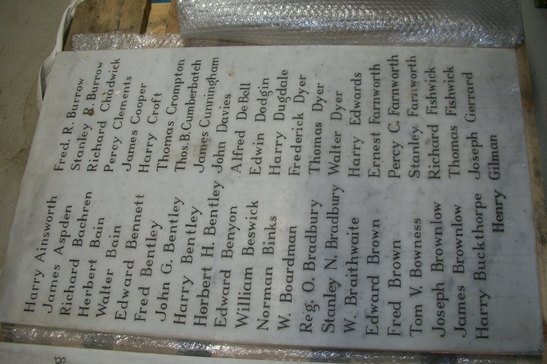 Harry Ainsworth
James Aspden
Richard Bachren
Herbert Bain
Walter Bain
Edward Bennett
Fred Bentley
John G. Bentley
Harry Bentley
Horbert H. Bentley
Edward Benyon
William Beswick
Norman Binks
W. Boardman
Reg. O. Bradbury
Stanley N. Bradbury
W. Braithwaite
Edward Brown
Fred Brown
Tom V. Bowness
Joseph Brownlow
James Brownlow
Harry Buckthorpe
Fred. R. Burrow
Stanley R. Burrow
Richard Chadwick
Percy Clements
James Cooper
Harry Croft
Thomas Crompton
Thos. B. Cumberbatch
James Cunningham
John Davies
Alfred De Bell
Edwin Dodgin
Harry Dugdale
Frederick Dyer
Thomas Dyer
Walter Dyer
Harry Edwards
Ernest Farnworth
Percy C. Farnworth
Stanley Farnworth
Richard Fishwick
Thomas Fishwick
Joseph Gerrard
Henry Gilman